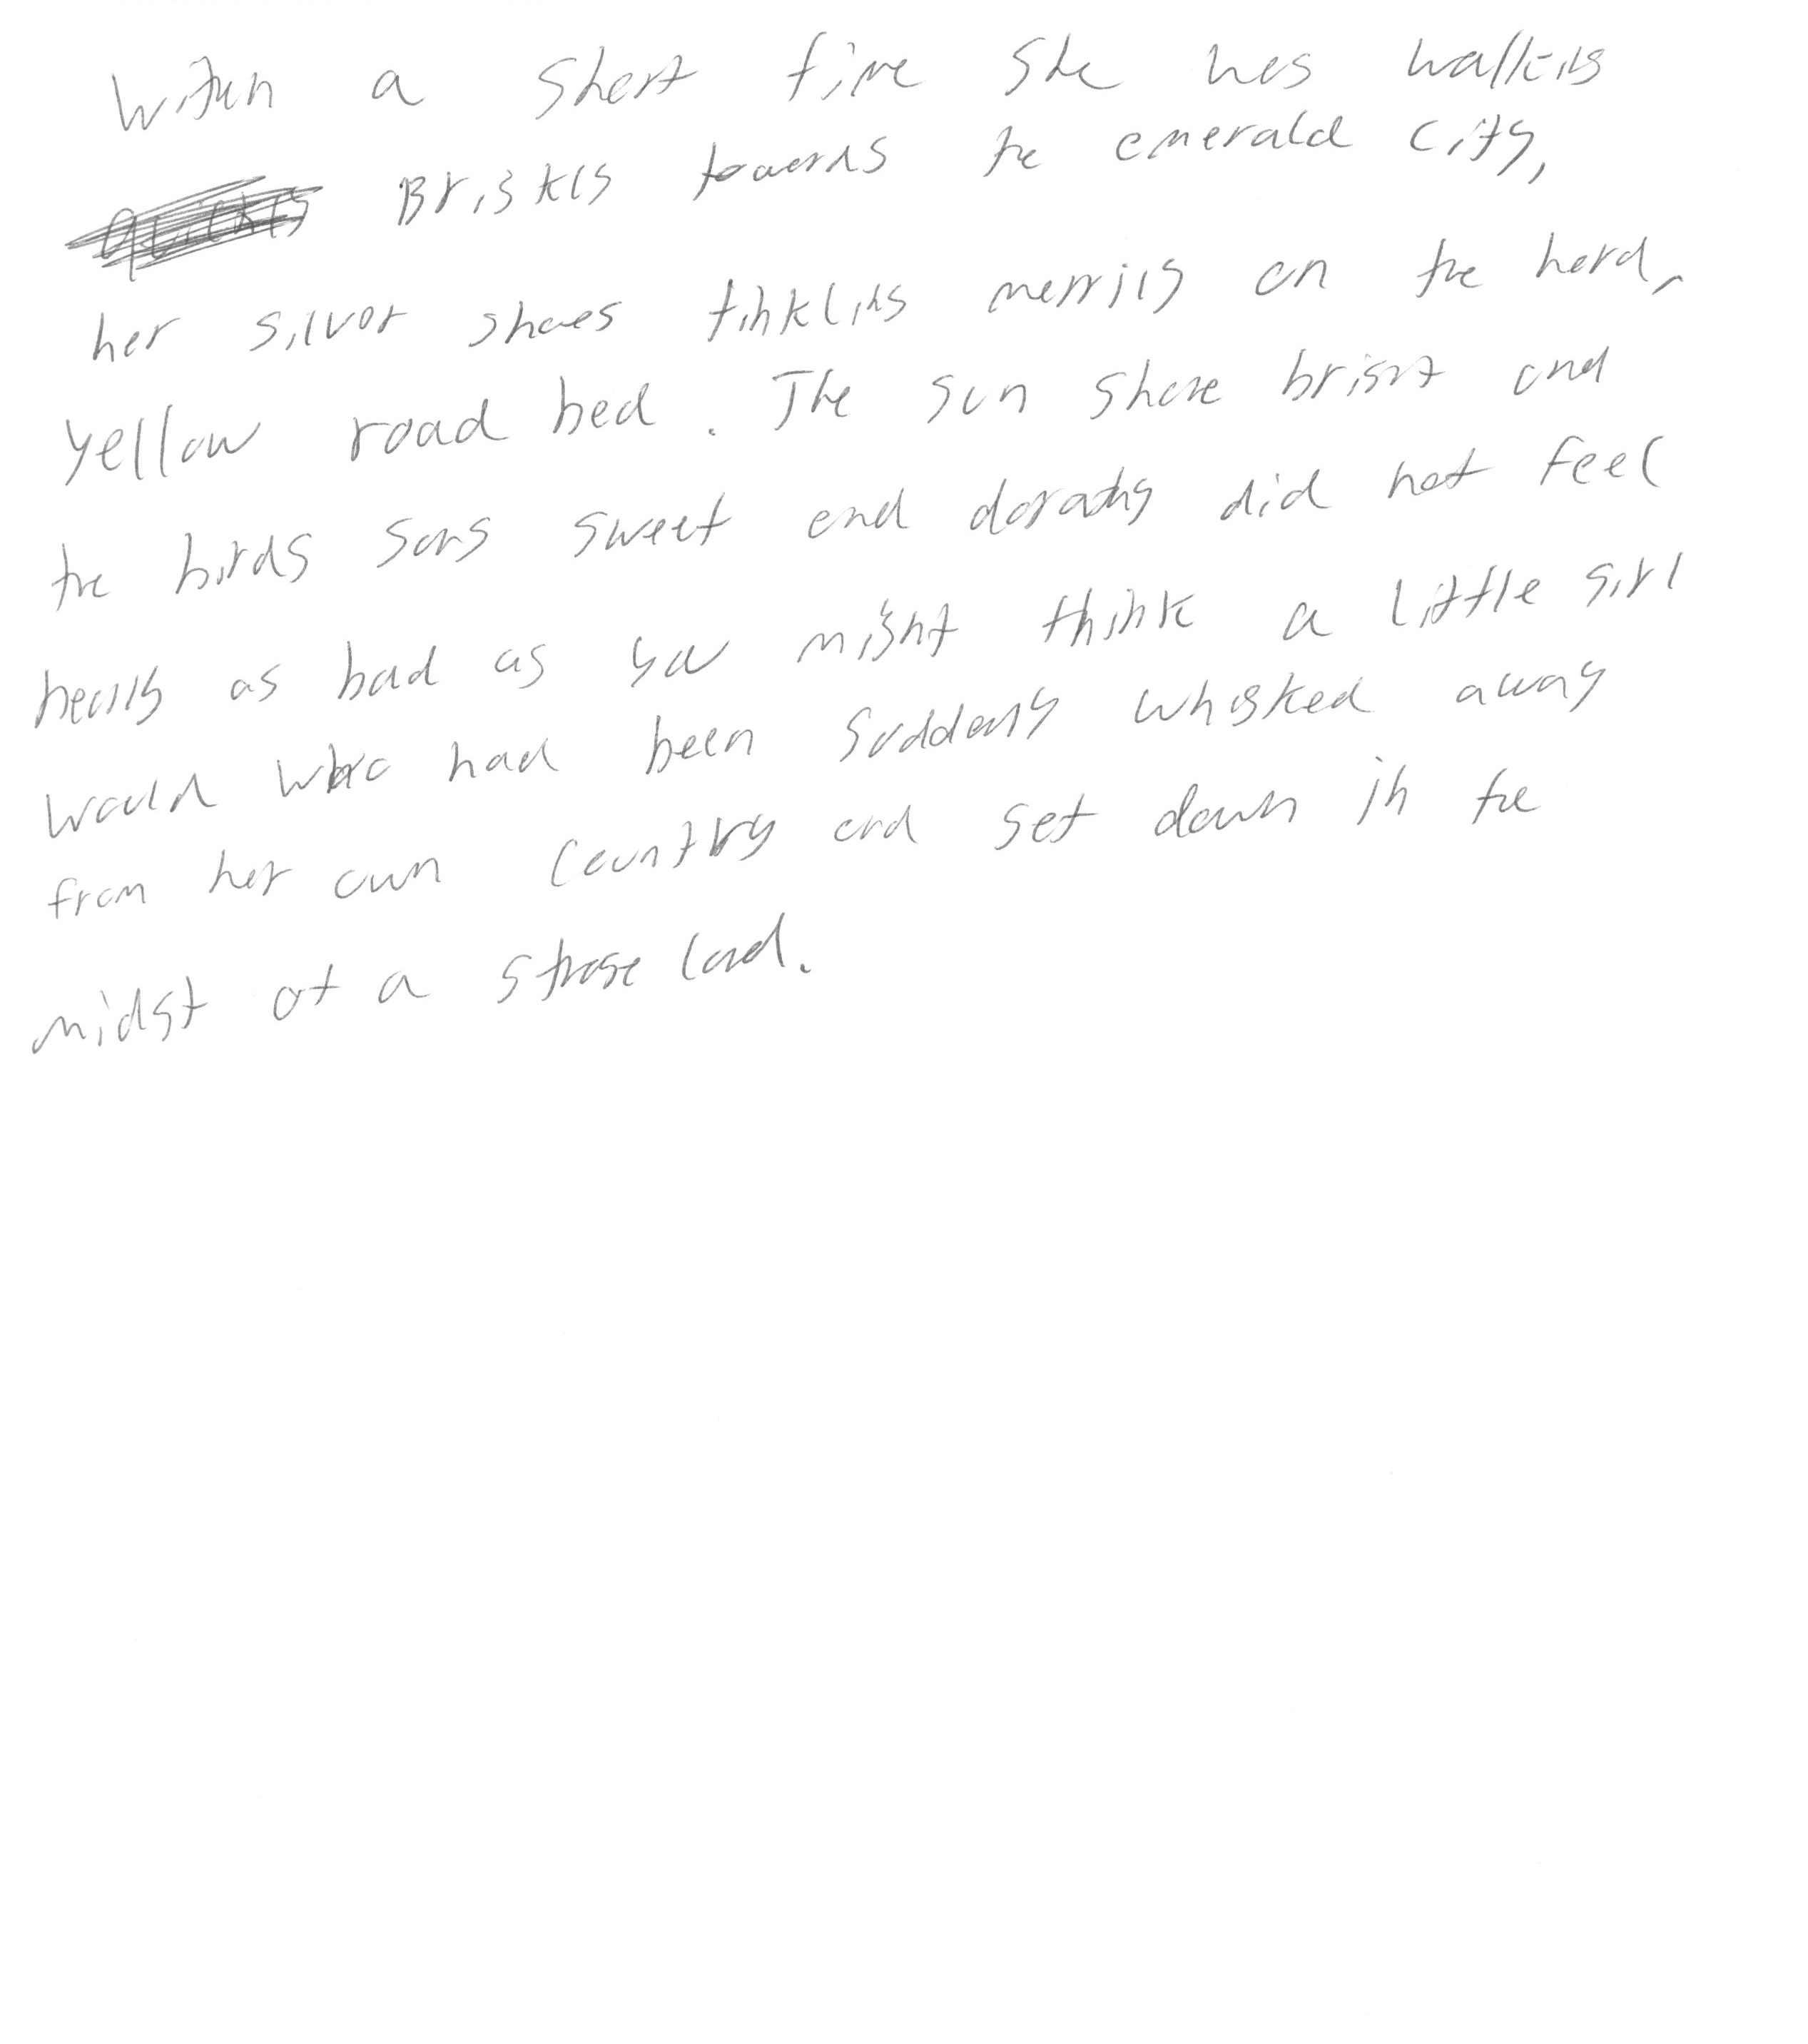 Within a short time she was walking
Briskly towards the emerald city,
her silver shoes tinkling merrily on the hard,
yellow road bed. The sun shone bright and
the birds sang sweet and dorathy did not feel
nearly as bad as you might think a little girl
would who had been suddenly whisked away
from her own country and set down in the
midst of a strange land.